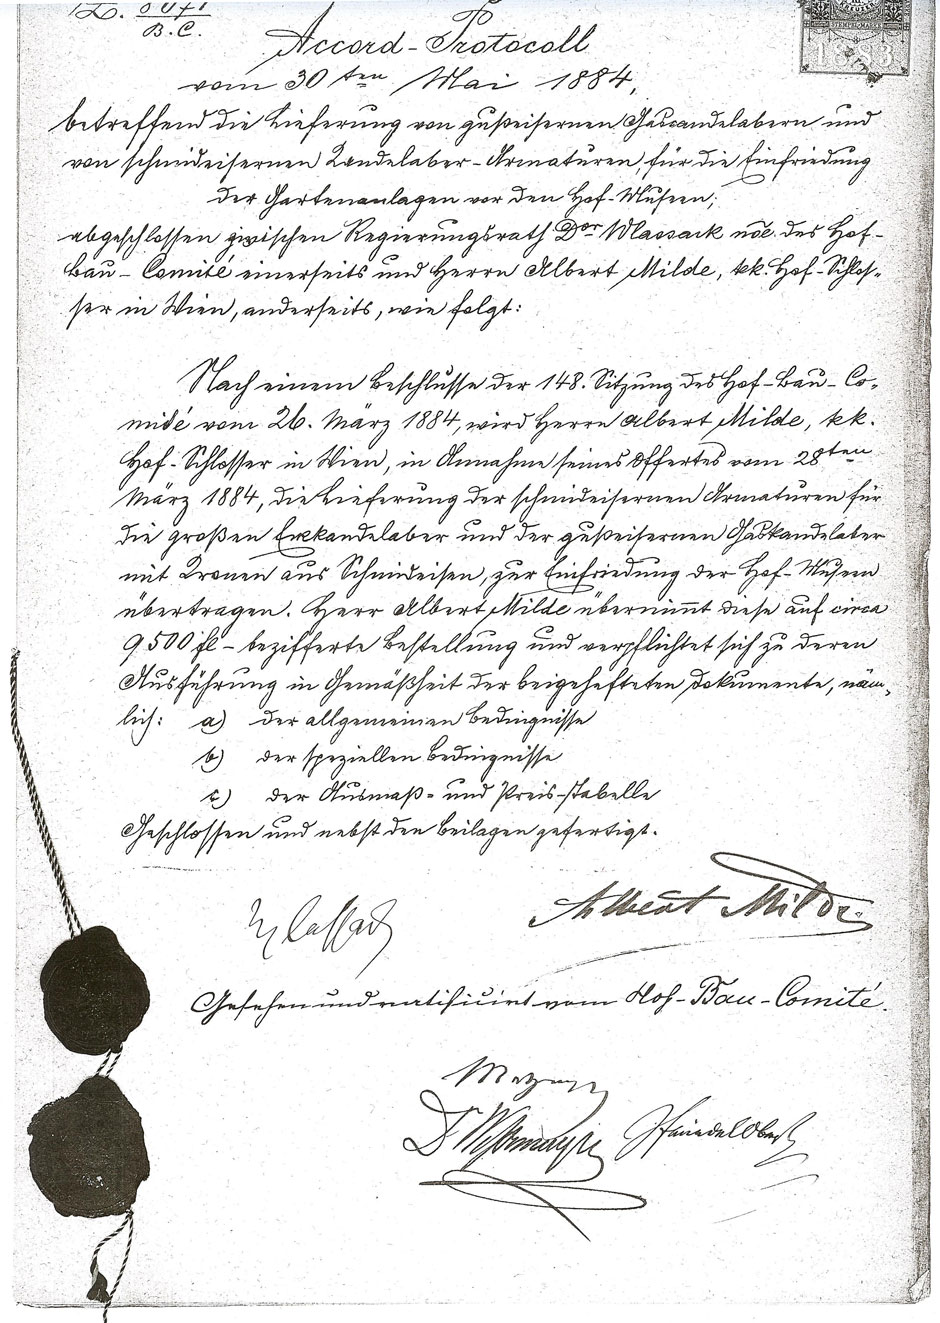 B.C.
1883
Accord-Protocoll
vom 30ten Mai 1884,
betreffend die Lieferung von gußeisernen Gascandelabern und
von schmideisernen Kandelaber-Armaturen, für die Einfriedung
der Gartenanlagen vor den Hof-Museen;
abgeschlossen zwischen Regierungsrath Dor Wlassack nōe. des Hof-
Bau-Comité einerseits und Herrn Albert Milde, kk. Hof-Schlos-
ser in Wien, anderseits, wie folgt:
Nach einem Beschlusse der 148. Sitzung des Hof-Bau-Co-
mité vom 26. März 1884, wird Herrn Albert Milde, kk.
Hof-Schlosser in Wien, in Annahme seines Offertes vom 28ten
März 1884, die Lieferung der schmideisernen Armaturen für
die großen Eckkandelaber und der gußeisernen Gaskandelaber
mit Kronen aus Schmideisen, zur Einfriedung der Hof-Museen
übertragen. Herr Albert Milde übernim̄t diese auf circa
9500 fl – bezifferte Bestellung und verpflichtet sich zu deren
Ausführung in Gemäßheit der beigehefteten Dokumente, näm-
lich: a) der allgemeinen Bedingnisse
b) der speziellen Bedingnisse
c) der Ausmaß- und Preis-Tabelle
Geschlossen und nebst den Beilagen gefertigt.
Wlassack
Albert Milde
Gesehen und ratificirt vom Hof-Bau-Comité.